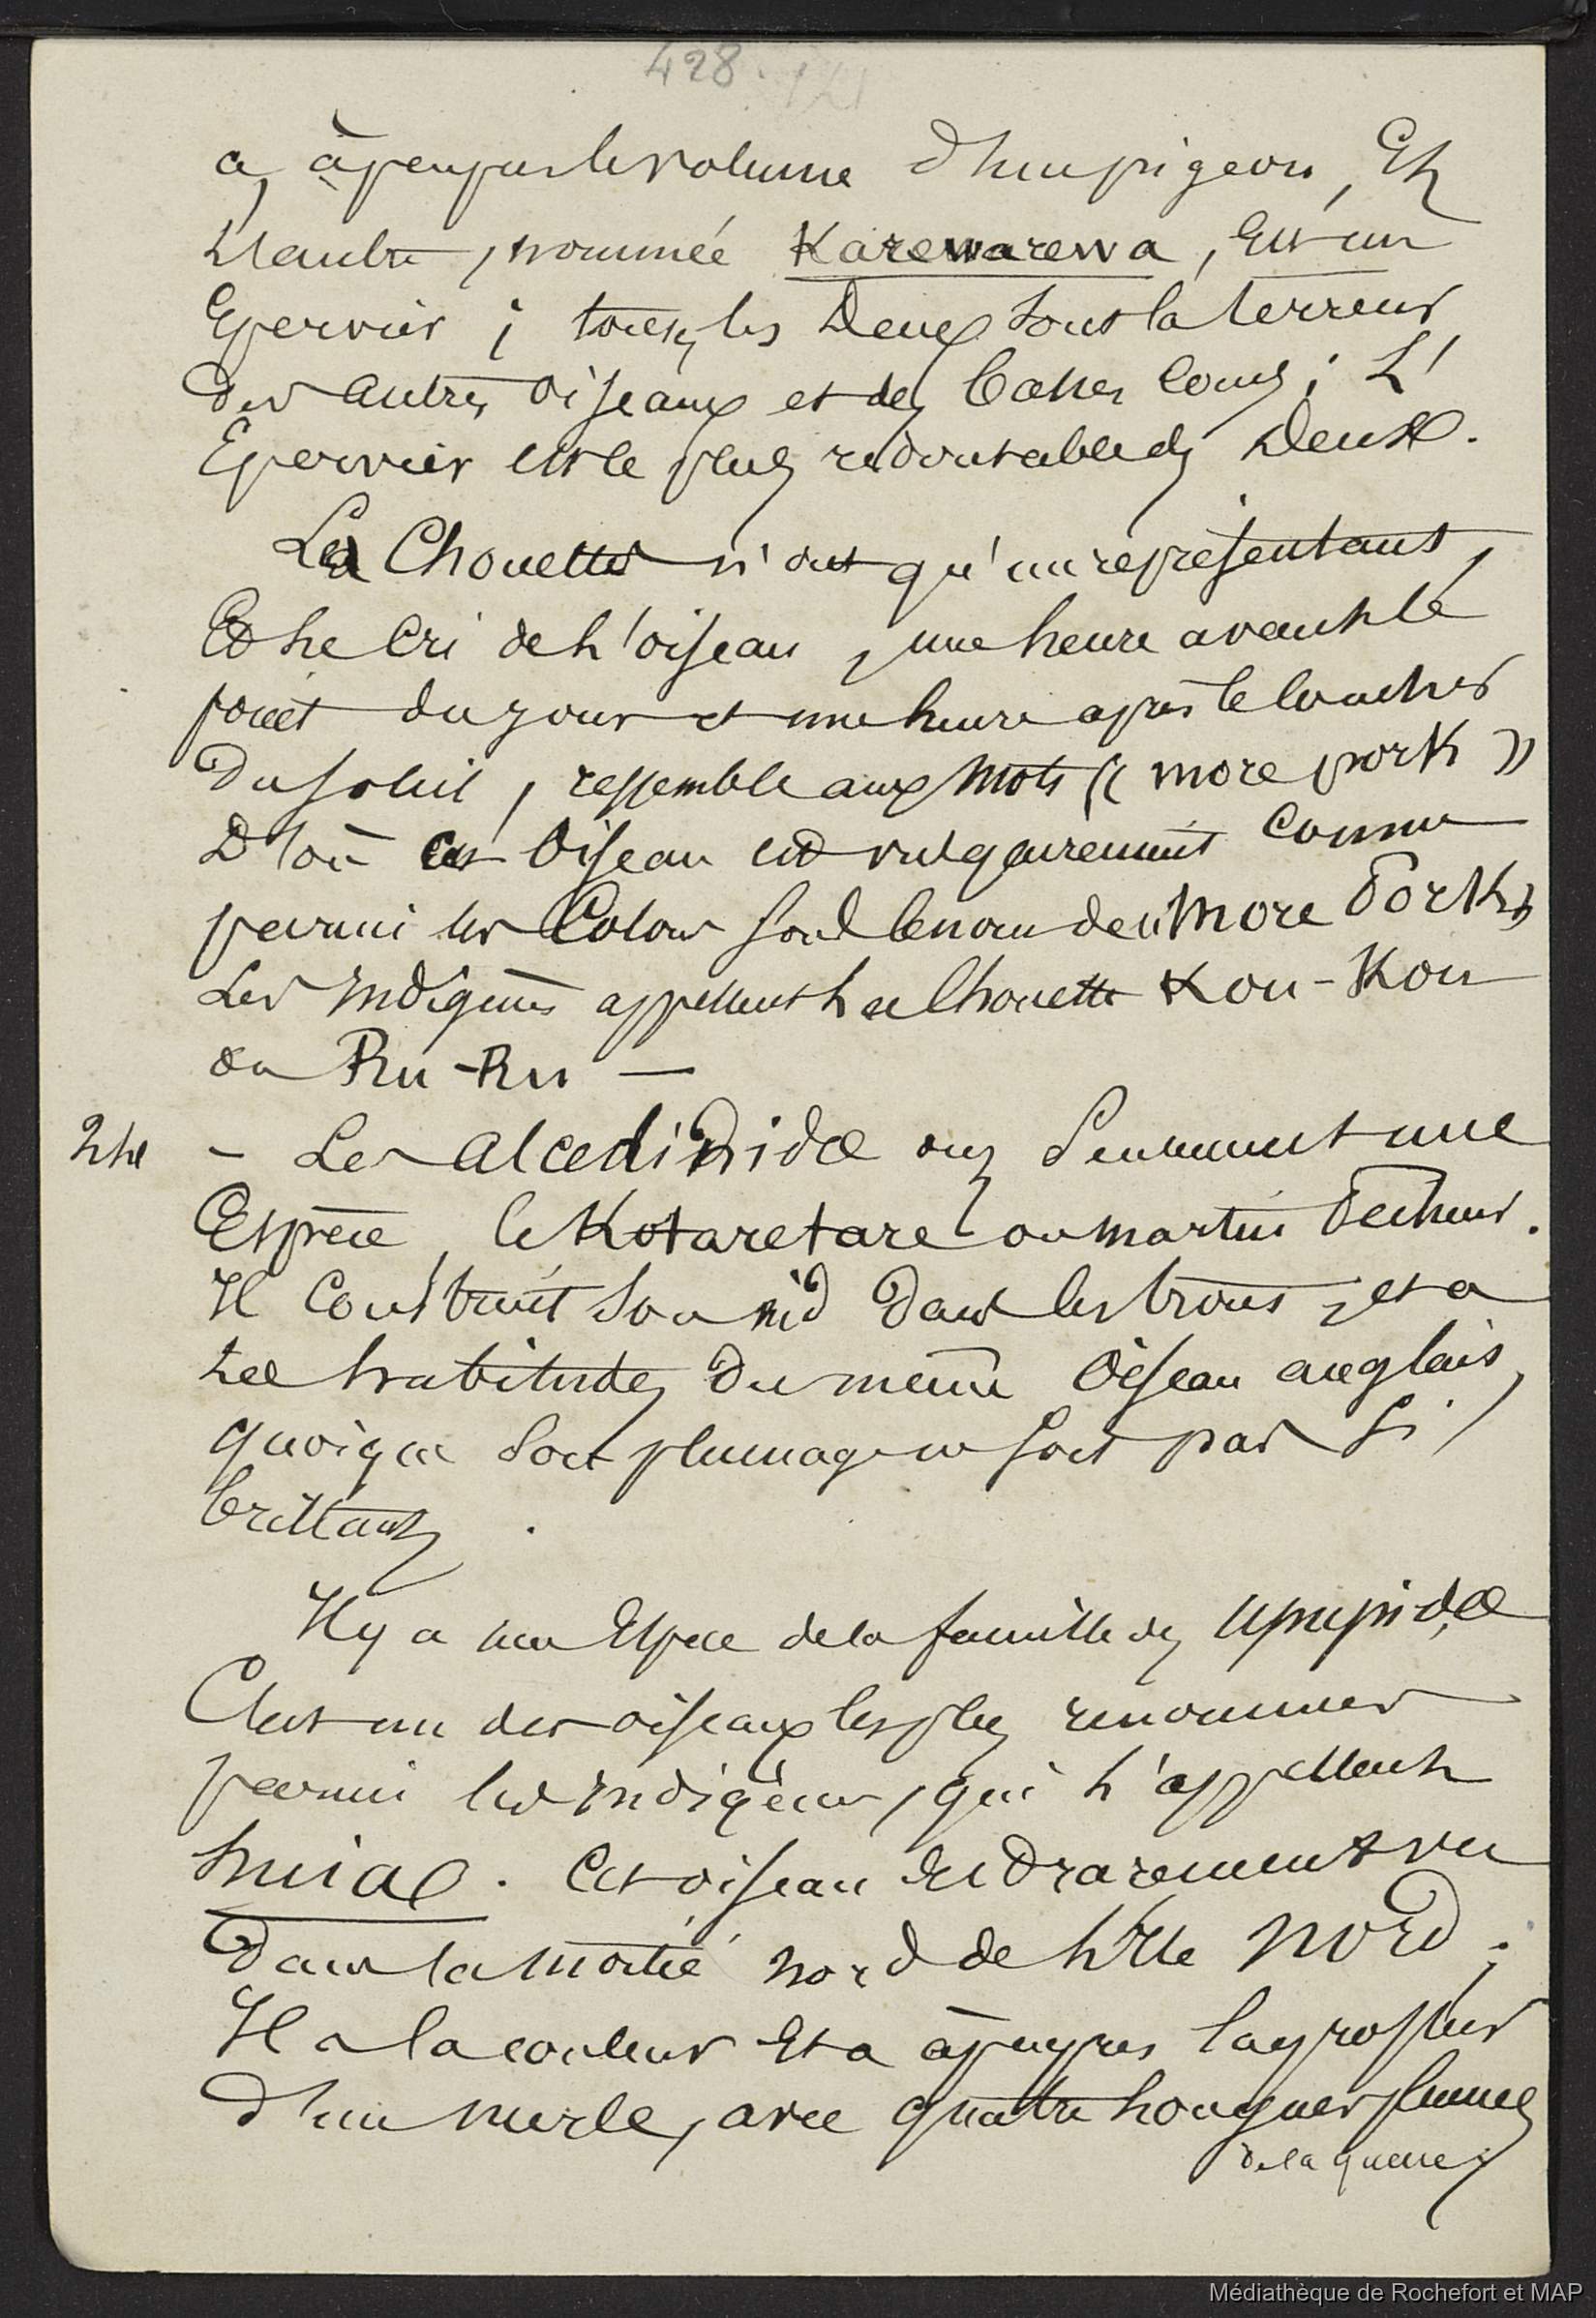 428
a, à peu près le volume d'un pigeon, Et
L'autre, nommée Karewarewa, Est un
Epervier; tous les Deux sont la terreur
des autres oiseaux et des basses cours; L'
Epervier est le plus redoutable des Deux.
Les Chouettes n'ont qu'un représentant,
Et le Cri de l'oiseau, une heure avant le
point du jour et une heure après le coucher
Du soleil, ressemble aux mots « more pork »
D'où cet Oiseau est vulgairement Connu
parmi les Colons sous le nom de « More Pork »
Les Indigènes appellent la Chouette Kou-Kou
ou Ru-Ru —
– Les alcedinidæ ont seulement une
Espèce, le Kotaretare ou martin Pêcheur.
Il Construit son nid dans les trous, et a
les habitudes du même Oiseau anglais,
quoique son plumage ne soit pas si
brillant.
Il y a une Espèce de la famille des upupidæ
C'est un des oiseaux les plus renommés
parmi les indigènes, qui l'appellent
huiae. Cet oiseau est rarement vu
Dans la moitié nord de l'Ile Nord;
Il a la couleur Et a à peu près la grosseur
d'un merle, avec quatre longues plumes
de la queue
Médiathèque de Rochefort et MAP